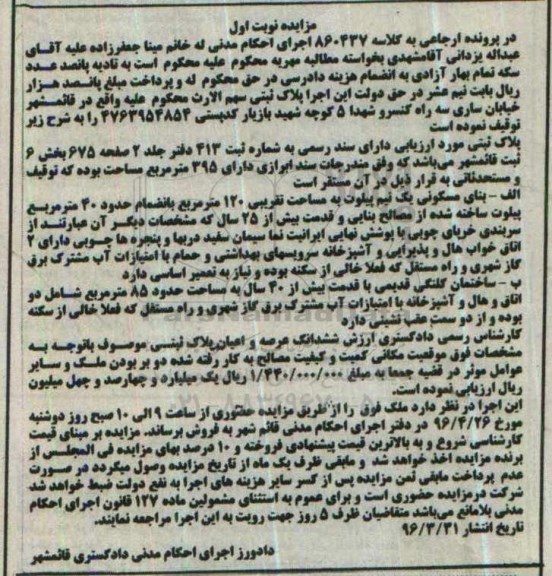 مزایده نوبت اول
در پرونده ارجاعی به کلاسه ۸۶۰۴۳۷ اجرای احکام مدنی له خانم مینا جعفرزاده علیه آقای
عبداله یزدانی آقامشهدی بخواسته مطالبه مهریه محکوم علیه محکوم است به تادیه پانصد عدد
سکه تمام بهار آزادی به انضمام هزینه دادرسی در حق محکوم له و پرداخت مبلغ پانصد هزار
ریال بابت نیم عشر در حق دولت این اجرا پلاک ثبتی سهم الارث محکوم علیه واقع در قائمشهر
خیابان ساری سه راه کنسرو شهدا ۵ کوچه شهید بازیار کدپستی ۴۷۶۳۹۵۴۸۵۴ را به شرح زیر
توقیف نموده است
پلاک ثبتی مورد ارزیابی دارای سند رسمی به شماره ثبت ۴۱۳ دفتر جلد ۲ صفحه ۶۷۵ بخش ۶
ثبت قائمشهر می‌باشد که وفق مندرجات سند ابرازی دارای ۳۹۵ مترمربع مساحت بوده که توقیف
و مستحدثاتی به قرار ذیل در آن مستقر است
الف - بنای مسکونی یک نیم پیلوت به مساحت تقریبی ۱۲۰ مترمربع بانضمام حدود ۴۰ مترمربع
پیلوت ساخته شده از مصالح بنایی و قدمت بیش از ۲۵ سال که مشخصات دیگر آن عبارتند از
سربندی خرپای چوبی با پوشش نهایی ایرانیت نما سیمان سفید دربها و پنجره ها چوبی دارای ۲
اتاق خواب هال و پذیرایی و آشپزخانه سرویسهای بهداشتی و حمام با امتیازات آب مشترک برق
گاز شهری و راه مستقل که فعلا خالی از سکنه بوده و نیاز به تعمیر اساسی دارد
ب - ساختمان گلنگی قدیمی با قدمت بیش از ۴۰ سال به مساحت حدود ۸۵ مترمربع شامل دو
اتاق و هال و آشپزخانه با امتیازات آب مشترک برق گاز شهری و راه مستقل که فعلا خالی از سکنه
بوده و از دو سمت عقب نشینی دارد
کارشناس رسمی دادگستری ارزش ششدانگ عرصه و اعیان پلاک ثبتی موصوف باتوجه به
مشخصات فوق موقعیت مکانی کمیت و کیفیت مصالح به کار رفته شده دو بر بودن ملک و سایر
عوامل موثر در قضیه جمعا به مبلغ ۱/۴۴۰/۰۰۰/۰۰۰ ریال یک میلیارد و چهارصد و چهل میلیون
ریال ارزیابی نموده است.
این اجرا در نظر دارد ملک فوق را از طریق مزایده حضوری از ساعت ۹ الی ۱۰ صبح روز دوشنبه
مورخ ۹۶/۴/۲۶ در دفتر اجرای احکام مدنی قائم شهر به فروش برساند. مزایده بر مبنای قیمت
کارشناسی شروع و به بالاترین قیمت پیشنهادی فروخته و ۱۰ درصد بهای مزایده فی المجلس از
برنده مزایده اخذ خواهد شد و مابقی ظرف یک ماه از تاریخ مزایده وصول میگردد در صورت
عدم پرداخت مابقی ثمن مزایده پس از کسر سایر هزینه های اجرا به نفع دولت ضبط خواهد شد
شرکت درمزایده حضوری است و برای عموم به استثنای مشمولین ماده ۱۲۷ قانون اجرای احکام
مدنی بلامانع می‌باشد متقاضیان ظرف ۵ روز جهت رویت به این اجرا مراجعه نمایند.
تاریخ انتشار ۹۶/۳/۳۱
دادورز اجرای احکام مدنی دادگستری قائمشهر